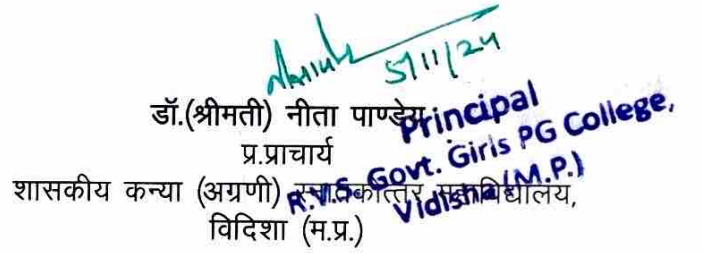 5/11/24
डॉ.(श्रीमती) नीता पाण्डेय
प्र.प्राचार्य
शासकीय कन्या (अग्रणी) स्नातकोत्तर महाविद्यालय,
विदिशा (म.प्र.)
Principal
R.V.S. Govt. Girls PG College,
Vidisha (M.P.)